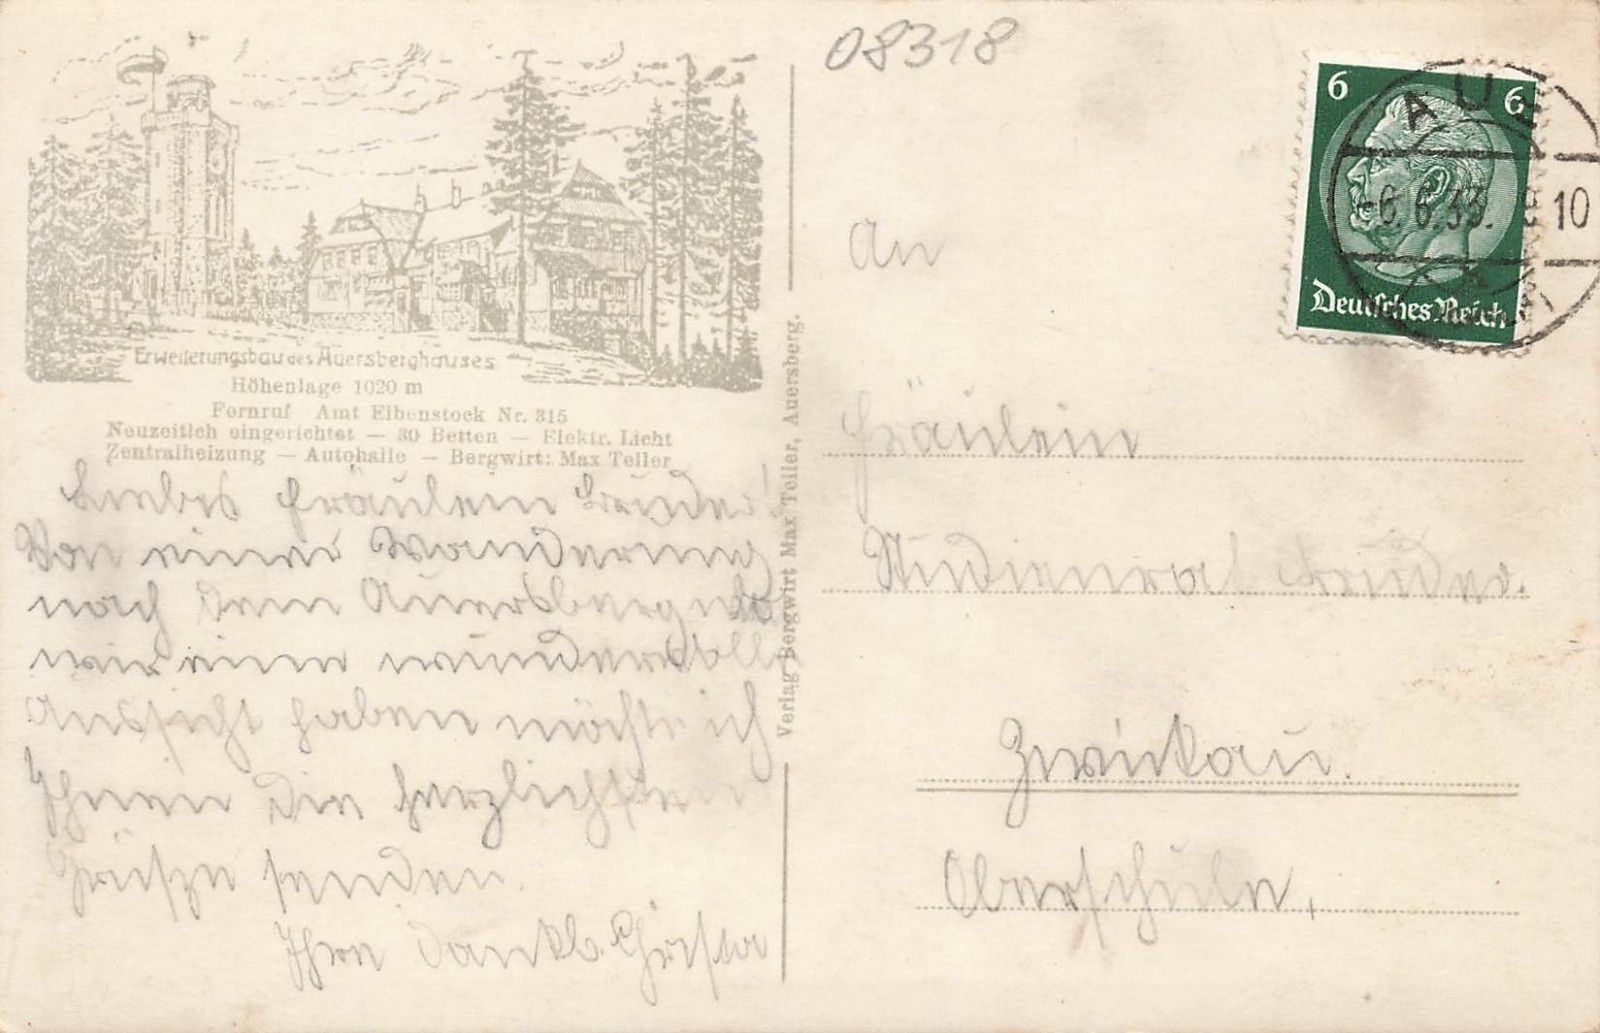 08318
6 6
AUE
-6.6.39. 9 10
Deutsches Reich
Erweiterungsbau des Auersberghauses
Höhenlage 1020 m
Fernruf Amt Eibenstock Nr. 315
Neuzeitlich eingerichtet — 30 Betten — Elektr. Licht
Zentralheizung — Autohalle — Bergwirt: Max Teller
Liebes Fräulein
Von einer Wanderung
nach dem Auersberg wo
wir eine wundervolle
Aussicht haben möchte ich
Ihnen die herzlichsten
Grüsze senden.
Ihre dankb. Christa
Verlag Bergwirt Max Teller, Auersberg.
An
Fräulein
Studienrat
Zwickau.
Oberschule,